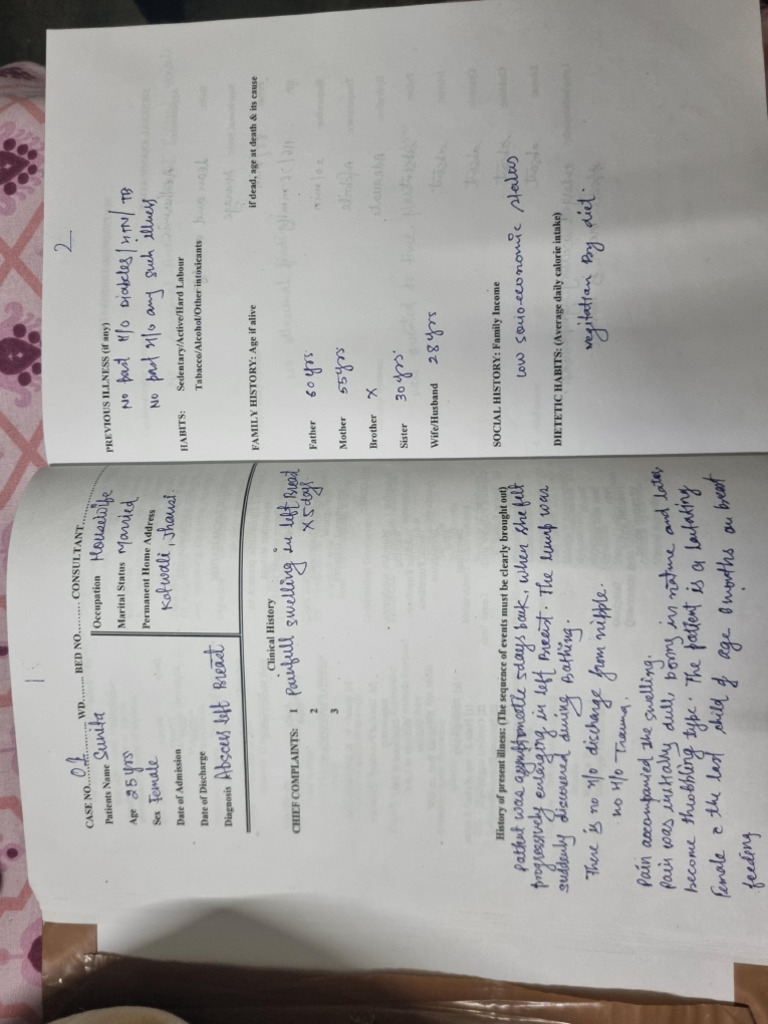 1
CASE NO. 01 WD......... BED NO......... CONSULTANT.........
Patients Name Sunita
Occupation Housewife
Age 25 yrs
Marital Status Married
Sex Female
Permanent Home Address
Kotwali, Jhansi.
Date of Admission
Date of Discharge
Diagnosis Abscess left Breast
Clinical History
CHIEF COMPLAINTS: 1 Painfull swelling in left Breast
x 5 days
2
3
History of present illness: (The sequence of events must be clearly brought out)
Patient was 5days back, when she felt
progressively enlarging in left Breast. The lump was
suddenly discovered during Bathing.
There is no H/o discharge from nipple.
no H/o Trauma.
Pain accompanied the swelling.
Pain was initially dull, boring in nature and later
become throbbing type. The patient is a lactating
Female c the last child of age months on breast
feeding
2
PREVIOUS ILLNESS (if any)
No past H/O Diabetes/HTN/TB
No past H/o any such illness
HABITS: Sedentary/Active/Hard Labour
Tabacco/Alcohol/Other intoxicants
FAMILY HISTORY: Age if alive if dead, age at death & its cause
Father 60 yrs.
Mother 55 yrs
Brother X
Sister 30 yrs.
Wife/Husband 28 yrs
SOCIAL HISTORY: Family Income
low socio-economic status
DIETETIC HABITS: (Average daily calorie intake)
vegitatian By diet.